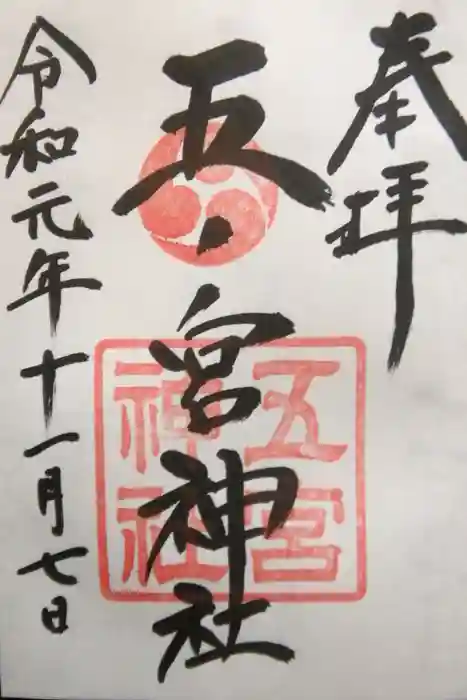 奉拝
五ノ宮神社
令和元年十一月七日
五宮
神社